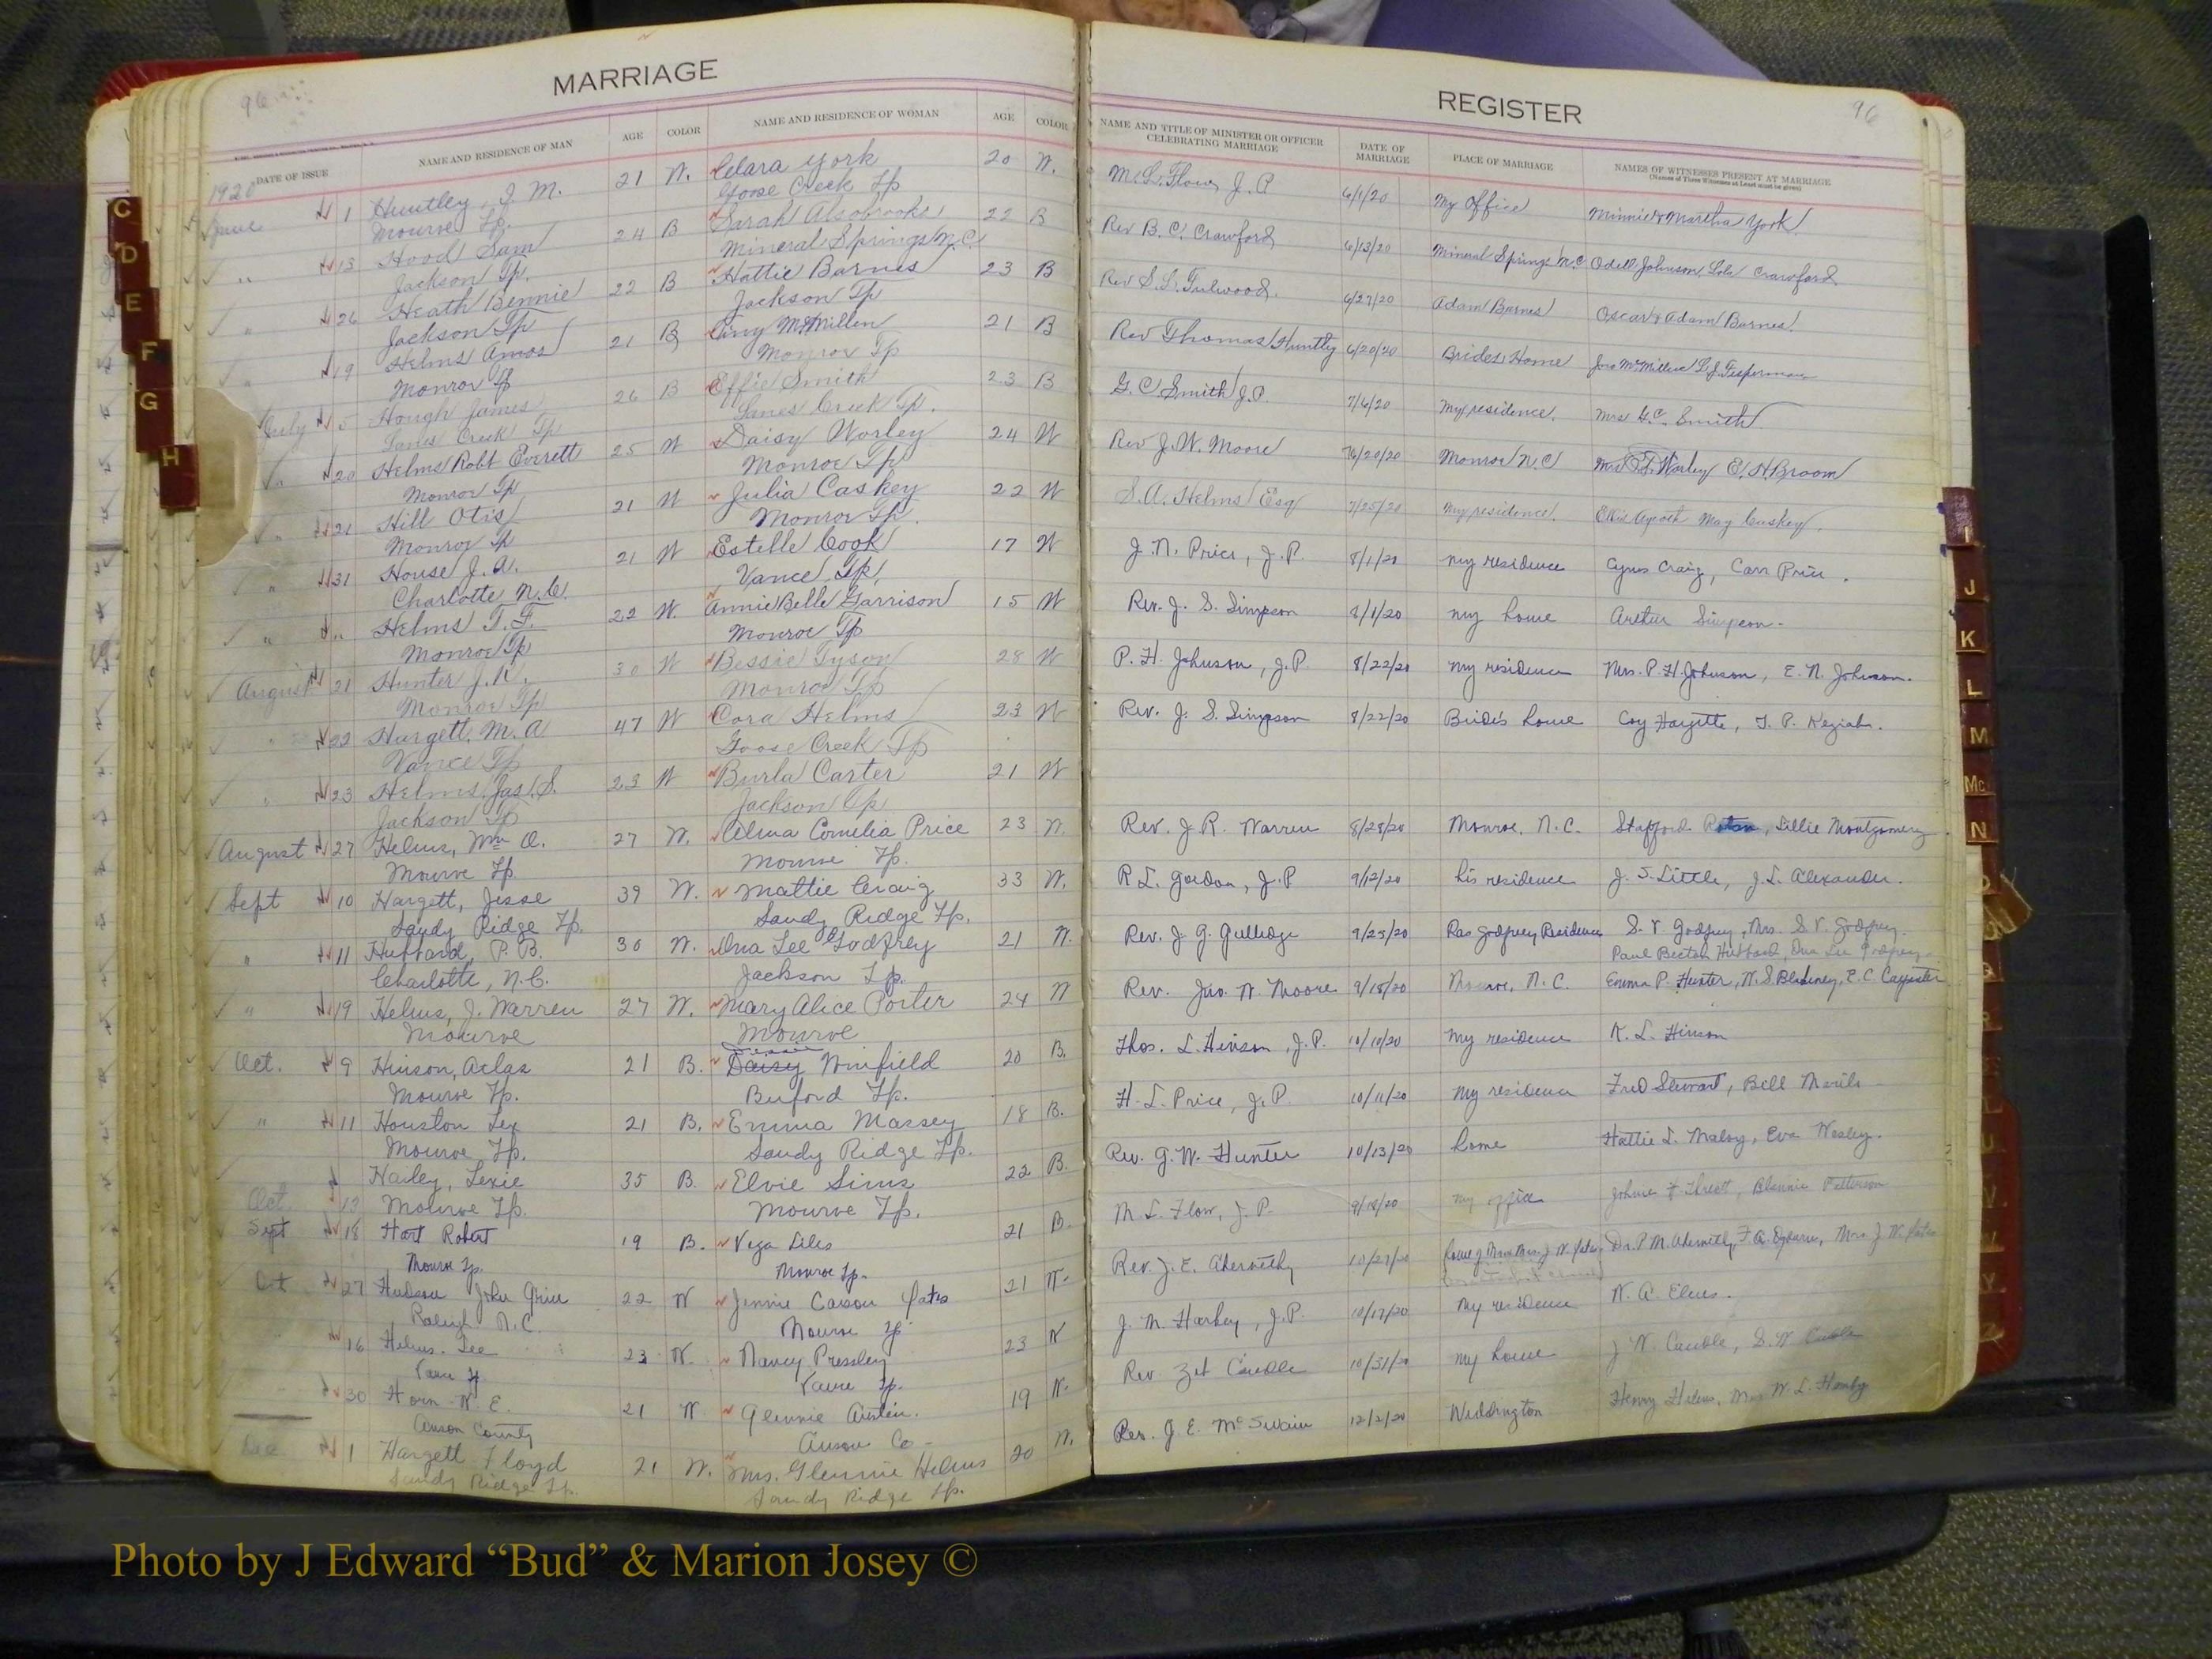 MARRIAGE
96
DATE OF ISSUE NAME AND RESIDENCE OF MAN AGE COLOR NAME AND RESIDENCE OF WOMAN AGE COLOR
1920
June 1 Huntley, J. M. 21 W. Clara York 20 W.
Monroe Tp. Goose Creek Tp
" 13 Hood Sam 24 B Sarah Alsobrooks 22 B
Jackson Tp. Mineral Springs N.C.
" 26 Heath Bennie 22 B Hattie Barnes 23 B
Jackson Tp Jackson Tp
" 19 Helms Amos 21 B McMillen 21 B
Monroe Tp Monroe Tp
July 5 Hough James 26 B Effie Smith 23 B
Lanes Creek Tp Lanes Creek Tp.
" 20 Helms Robt Everett 25 W Daisy Worley 24 W
Monroe Tp Monroe Tp
" 21 Hill Otis 21 W Julia Caskey 22 W
Monroe Tp Monroe Tp.
" 31 House J. A. 21 W Estelle Cook 17 W
Charlotte N.C. Vance Tp.
" " Helms T. F. 22 W. Annie Belle Garrison 15 W
Monroe Tp Monroe Tp
August 21 Hunter J. K. 30 W Bessie Tyson 28 W
Monroe Tp Monroe Tp
" 22 Hargett, M. A 47 W Cora Helms 23 W
Vance Tp Goose Creek Tp
" 23 Helms, Jas. S. 23 W Burla Carter 21 W
Jackson Tp Jackson Tp
August 27 Helms, Wm O. 27 W. Alma Cornelia Price 23 W.
Monroe Tp Monroe Tp.
Sept 10 Hargett, Jesse 39 W. Mattie Craig 33 W.
Sandy Ridge Tp. Sandy Ridge Tp.
" 11 Hubbard, P. B. 30 W. Ina Lee Godfrey 21 W.
Charlotte, N.C. Jackson Tp.
" 19 Helms, J. Warren 27 W. Mary Alice Porter 24 W
Monroe Monroe
Oct. 9 Hinson, Aclas 21 B. Daisy Winfield 20 B.
Monroe Tp. Buford Tp.
" 11 Houston Lex 21 B. Emma Massey 18 B.
Monroe Tp. Sandy Ridge Tp.
Hailey, Lexie 35 B. Elvie Sims 22 B.
Oct. 13 Monroe Tp. Monroe Tp.
Sept 18 Hart Robert 19 B. Vega Liles 21 B.
Monroe Tp. Monroe Tp.
Oct 27 Hudson John 22 W Jennie Carson Yates 21 W.
Raleigh N.C. Monroe Tp
16 Helms. Lee 23 W. Nancy Pressley 23 W
Vance Tp Vance Tp.
30 Horn W. E. 21 W Glennie Austin. 19 W.
Anson County Anson Co
Dec 1 Hargett Floyd 21 W. Mrs. Glennie Helms 20 W.
Sandy Ridge Tp. Sandy Ridge Tp.
REGISTER
96
NAME AND TITLE OF MINISTER OR OFFICER CELEBRATING MARRIAGE DATE OF MARRIAGE PLACE OF MARRIAGE NAMES OF WITNESSES PRESENT AT MARRIAGE
(Names of Three Witnesses at Least must be given)
M. L. Flow, J. P 6/1/20 My office Minnie & Martha York.
Rev B. C. Crawford 6/13/20 Mineral Springs N.C. Odell Johnson, Lola Crawford
Rev S. L. Fulwood. 6/27/20 Adam Barnes Oscar & Adam Barnes.
Rev Thomas Huntley 6/20/20 Brides Home McMillen L. J.
G. C. Smith J.P. 7/6/20 My residence. Mrs G. C. Smith
Rev J. W. Moore 7/20/20 Monroe N.C Worley E. H. Broom
S. A. Helms Esq 7/25/20 My residence. May Caskey.
J. N. Price, J.P. 8/1/20 my residence Cyrus Craig, Carr Price.
Rev. J. S. Simpson 8/1/20 my home Arthur Simpson.
P. H. Johnson, J.P. 8/22/20 my residence Mrs. P. H. Johnson, E. N. Johnson.
Rev. J. S. Simpson 8/22/20 Bride's home Coy Hargette, T. P. Keziah.
Rev. J. R. Warren 8/28/20 Monroe, N.C. Stafford Lillie Montgomery
R L. Gordon, J.P 9/12/20 his residence J. S. Little, J. L. Alexander.
Rev. J. G. Gulledge 9/23/20 Ras Godfrey Residence S. V. Godfrey, Mrs. S. V. Godfrey.
Paul Hubbard, Ina Lee Godfrey
Rev. Jno. W. Moore 9/15/20 Monroe, N.C. Emma P. Hunter, W. S. Blakeney, E. C. Carpenter
Thos. L. Hinson, J.P. 10/10/20 My residence K. L. Hinson
H. L. Price, J.P. 10/11/20 my residence Fred Stewart, Bell
Rev. G. W. Hunter 10/13/20 home Hattie L. Maloy, Eva Wesley.
M. L. Flow, J.P. 9/18/20 my office Threatt, Patterson
Rev. J. E. Abernethy 10/27/20 Dr. P. M. Abernethy, Mrs. J. W. Yates
J. M. Harkey, J.P. 10/17/20 my residence
Rev Zeb Caudle 10/31/20 my home J W. Caudle, S. W. Caudle
Rev. J. E. McSwain 12/2/20 Weddington Henry Helms,
C
D
E
F
G
H
I
J
K
L
M
Mc
N
Photo by J Edward “Bud” & Marion Josey ©